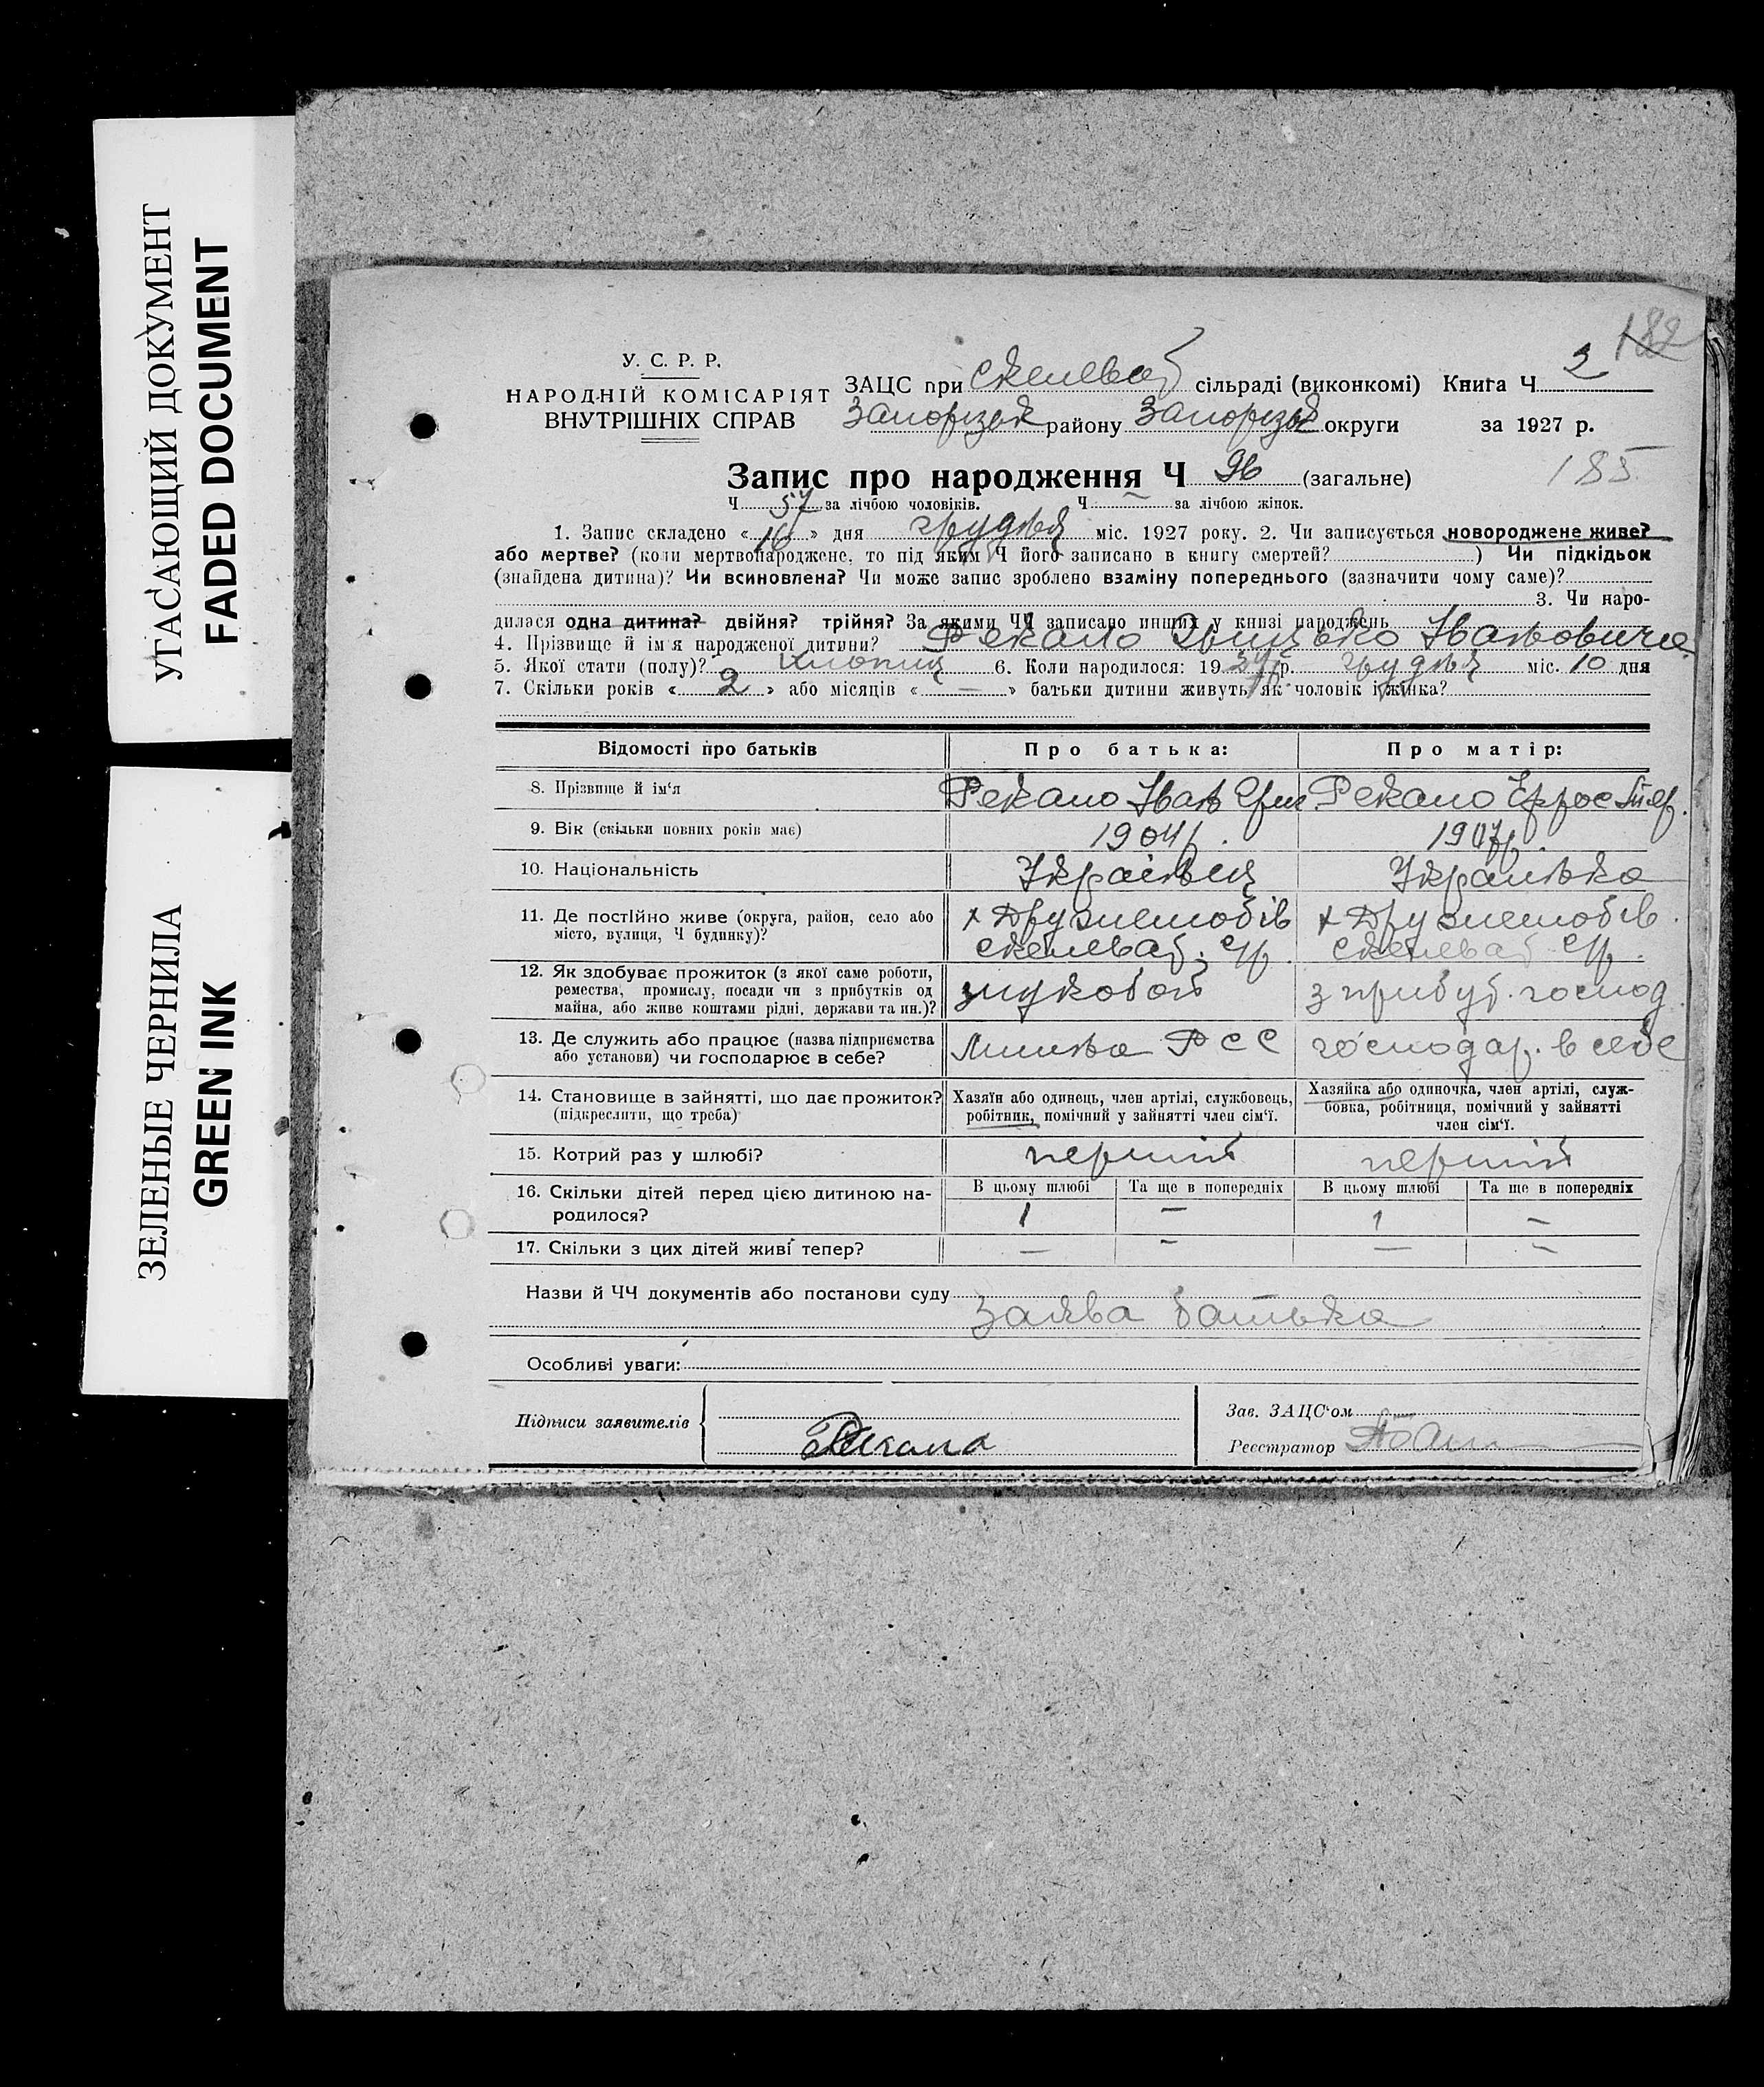 УГАСАЮЩИЙ ДОКУМЕНТ
FADED DOCUMENT
ЗЕЛЕНЫЕ ЧЕРНИЛА
GREEN INK
182
У. С. Р. Р.
НАРОДНІЙ КОМІСАРІЯТ
ВНУТРІШНІХ СПРАВ
ЗАЦС при Скелеват сільраді (виконкомі) Книга Ч 2
Запорізьк району Запорізьк округи за 1927 р.
Запис про народження Ч 96 (загальне)
185
Ч 57 за лічбою чоловіків. Ч — за лічбою жінок.
1. Запис складено «16» дня грудня міс. 1927 року. 2. Чи записується новороджене живе?
або мертве? (коли мертвонароджене, то під яким Ч його записано в книгу смертей?) Чи підкідьок
(знайдена дитина)? Чи всиновлена? Чи може запис зроблено взаміну попереднього (зазначити чому саме)?
3. Чи наро-
дилася одна дитина? двійня? трійня? За якими ЧЧ записано инших у книзі народжень
4. Прізвище й ім'я народженої дитини? Рекало Грицько Іванович
5. Якої статі (полу)? хлопиц 6. Коли народилося: 19 р. грудня міс. 10 дня
7. Скільки років «2» або місяців «—» батьки дитини живуть як чоловік і жінка?
Відомості про батьків
Про батька:
Про матір:
8. Прізвище й ім'я
Рекало Іван Григ
Рекало
9. Вік (скільки повних років має)
1904 р.
1907 р.
10. Національність
Українец
Українка
11. Де постійно живе (округа, район, село або
місто, вулиця, Ч будинку)?
х Дружелюбів
Скелеват. с/р
х Дружелюбів.
Скелеват с/р.
12. Як здобуває прожиток (з якої саме роботи,
ремества, промислу, посади чи з прибутків од
майна, або живе коштами рідні, держави та ин.)?
з прибут. господ.
13. Де служить або працює (назва підприємства
або установи) чи господарює в себе?
РСС
господар. в себе
14. Становище в зайнятті, що дає прожиток?
(підкреслити, що треба)
Хазяїн або одинець, член артілі, службовець,
робітник, помічний у зайнятті член сім'ї.
Хазяйка або одиночка, член артілі, служ-
бовка, робітниця, помічний у зайнятті
член сім'ї.
15. Котрий раз у шлюбі?
перший
перший
16. Скільки дітей перед цією дитиною на-
родилося?
В цьому шлюбі
Та ще в попередніх
В цьому шлюбі
Та ще в попередніх
1 — 1 —
17. Скільки з цих дітей живі тепер?
— — — —
Назви й ЧЧ документів або постанови суду
заява батька
Особливі уваги:
Підписи заявителів
Рекало
Зав. ЗАЦС'ом
Реєстратор